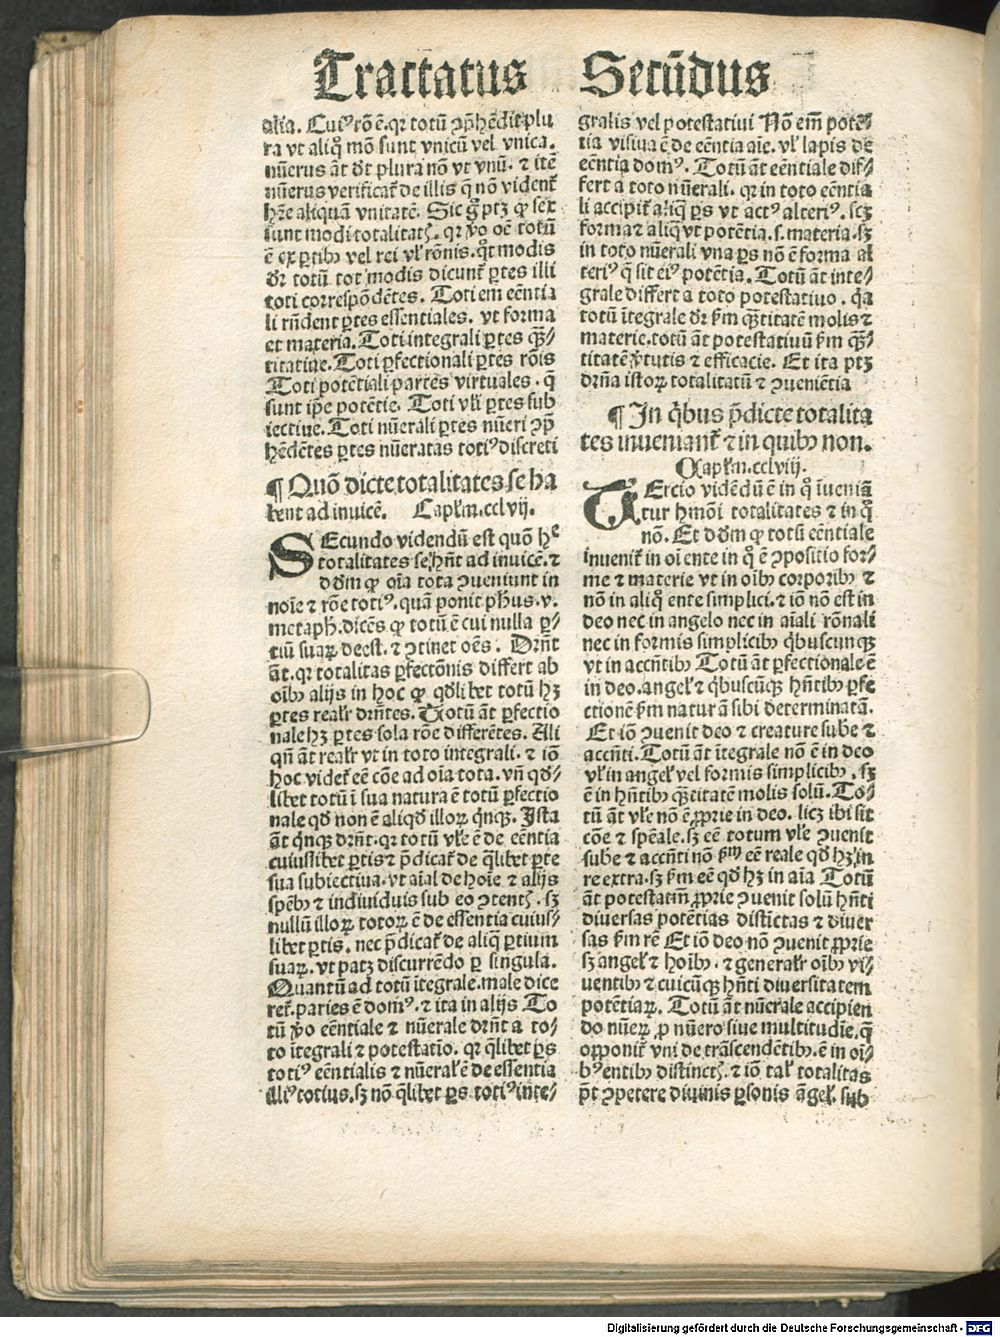 Tractatus Secūdus
alia. Cuiꝰ rō ē. qꝛ totū ꝯp̄hēdit plu
ra vt aliq̊ mō sunt vnicū vel vnica.
nūerus āt dꝛ plura nō vt vnū. ⁊ itē
nūerus verificat᷑ de illis q̄ nō vident᷑
hr̄e aliquā vnitatē. Sic g̊ ptꝫ ꝙ sex
sunt modi totalitatꝭ. qꝛ v̊o oē totū
ē ex ꝑtibꝰ vel rei vl̓ rōnis. q̊t modis
dꝛ totū tot modis dicunt᷑ ꝑtes illi
toti correspōdētes. Toti em̄ eēntia
li rn̄dent ꝑtes essentiales. vt forma
et materia. Toti integrali ꝑtes qȝ̄-
titatiue. Toti ꝑfectionali ꝑtes rōis
Toti potētiali partes virtuales. q̄
sunt ip̄e potētie. Toti vl̓i ꝑtes sub
iectiue. Toti nūerali ꝑtes nūeri ꝯp̄
hēdētes ꝑtes nūeratas totiꝰ discreti
¶ Quō dicte totalitates se ha
bent ad inuicē. Capl̓m. cclvij.
SEcundo videndū est quō he
totalitates se hn̄t ad inuicē. ⁊
dōm ꝙ oīa tota ꝯueniunt in
noīe ⁊ rōe totiꝰ. quā ponit ph̓us. v.
metaph̓. dicēs ꝙ totū ē cui nulla ꝑ-
tiū suaꝝ deest. ⁊ ꝯtinet oēs. Drn̄t
āt. qꝛ totalitas ꝑfectōnis differt ab
oībꝰ alijs in hoc ꝙ qd̓libet totū hꝫ
ꝑtes realr̓ drn̄tes. Totū āt ꝑfectio
nale hꝫ ꝑtes sola rōne differētes. Ali
qn̄ āt realr̓ vt in toto integrali. ⁊ iō
hoc videt᷑ eē cōe ad oīa tota. vn̄ qd̓-
libet totū ī sua natura ē totū ꝑfectio
nale qd̓ non ē aliqd̓ illoꝝ qn̄qꝫ. Ista
āt qn̄qꝫ drn̄t. qꝛ totū vl̓e ē de eēntia
cuiuslibet ꝑtis ⁊ p̄dicat᷑ de q̄libet ꝑte
sua subiectiua. vt aīal de hoīe ⁊ alijs
spēbꝰ ⁊ indiuiduis sub eo ꝯtentꝭ. sꝫ
nullū illoꝝ totoꝝ ē de essentia cuius-
libet ꝑtis. nec p̄dicat᷑ de aliq̄ ꝑtium
suaꝝ. vt patꝫ discurrēdo ꝑ singula.
Quantū ad totū ītegrale. male dice
ret᷑. paries ē domꝰ. ⁊ ita in alijs To
tū v̊o eēntiale ⁊ nūerale drn̄t a to-
to ītegrali ⁊ potestatīo. qꝛ q̄libet ꝑs
totiꝰ eēntialis ⁊ nūeral̓ ē de essentia
illiꝰ totius. sꝫ nō q̄libet ꝑs totiꝰ inte-
gralis vel potestatiui Nō em̄ potē-
tia visiua ē de eēntia aīe. vl̓ lapis de
eēntia domꝰ. Totū āt eēntiale dif-
fert a toto nūerali. qꝛ in toto eēntia
li accipit᷑ aliq̄ ꝑs vt actꝰ alteriꝰ. scꝫ
forma ⁊ aliq̄ vt potētia. s. materia. sꝫ
in toto nūerali vna ꝑs nō ē forma al
teriꝰ q̄ sit eiꝰ potētia. Totū āt inte-
grale differt a toto potestatiuo. q̇a
totū ītegrale dꝛ ẜm qȝ̄titatē molis ⁊
materie. totū āt potestatiuū ẜm qȝ̄-
titatē v̓tutis ⁊ efficacie. Et ita ptꝫ
drn̄a istoꝝ totalitatū ⁊ ꝯueniētia
¶ In q̇bus p̄dicte totalita
tes inueniant᷑ ⁊ in quibꝰ non.
Capl̓m. cclviij.
TErcio vidēdū ē in q̊ īueniā
tur hmōi totalitates ⁊ in q̊
nō. Et dōm ꝙ totū eēntiale
inuenit᷑ in oī ente in q̊ ē ꝯpositio for-
me ⁊ materie vt in oībꝰ corporibꝰ ⁊
nō in aliq̊ ente simplici. ⁊ iō nō est in
deo nec in angelo nec in aīali rōnali
nec in formis simplicibꝰ q̇buscunqꝫ
vt in accn̄tibꝰ Totū āt ꝑfectionale ē
in deo. angel̓ ⁊ q̇buscūqꝫ hn̄tibꝰ ꝑfe
ctionē ẜm naturā sibi determinatā.
Et iō ꝯuenit deo ⁊ creature sub̓e ⁊
accn̄ti. Totū āt ītegrale nō ē in deo
vl̓ in angel̓ vel formis simplicibꝰ. sꝫ
ē in hn̄tibꝰ qȝ̄titatē molis solū. To-
tū āt vl̓e nō ē ꝓprie in deo. licꝫ ibi sit
cōe ⁊ spēale. sꝫ eē totum vl̓e ꝯuenit
sub̓e ⁊ accn̄ti nō ẜm eē reale qd̓ hꝫ in
re extra. sꝫ ẜm eē qd̓ hꝫ in aīa Totū
āt potestatiū ꝓprie ꝯuenit solū hn̄ti
diuersas potētias distīctas ⁊ diuer
sas ẜm rē Et iō deo nō ꝯuenit ꝓprie
sꝫ angel̓ ⁊ hoībꝰ. ⁊ generalr̓ oībꝰ vi-
uentibꝰ ⁊ cuicūqꝫ hn̄ti diuersitatem
potētiaꝝ. Totū āt nūerale accipien
do nūeꝝ ꝓ nūero siue multitudīe. q̄
opponit᷑ vni de trāscendētibꝰ. ē in oī-
bꝰ entibꝰ distinctꝭ. ⁊ iō tal̓ totalitas
pt̄ ꝯpetere diuinis ꝑsonis āgel̓. sub
Digitalisierung gefördert durch die Deutsche Forschungsgemeinschaft - DFG